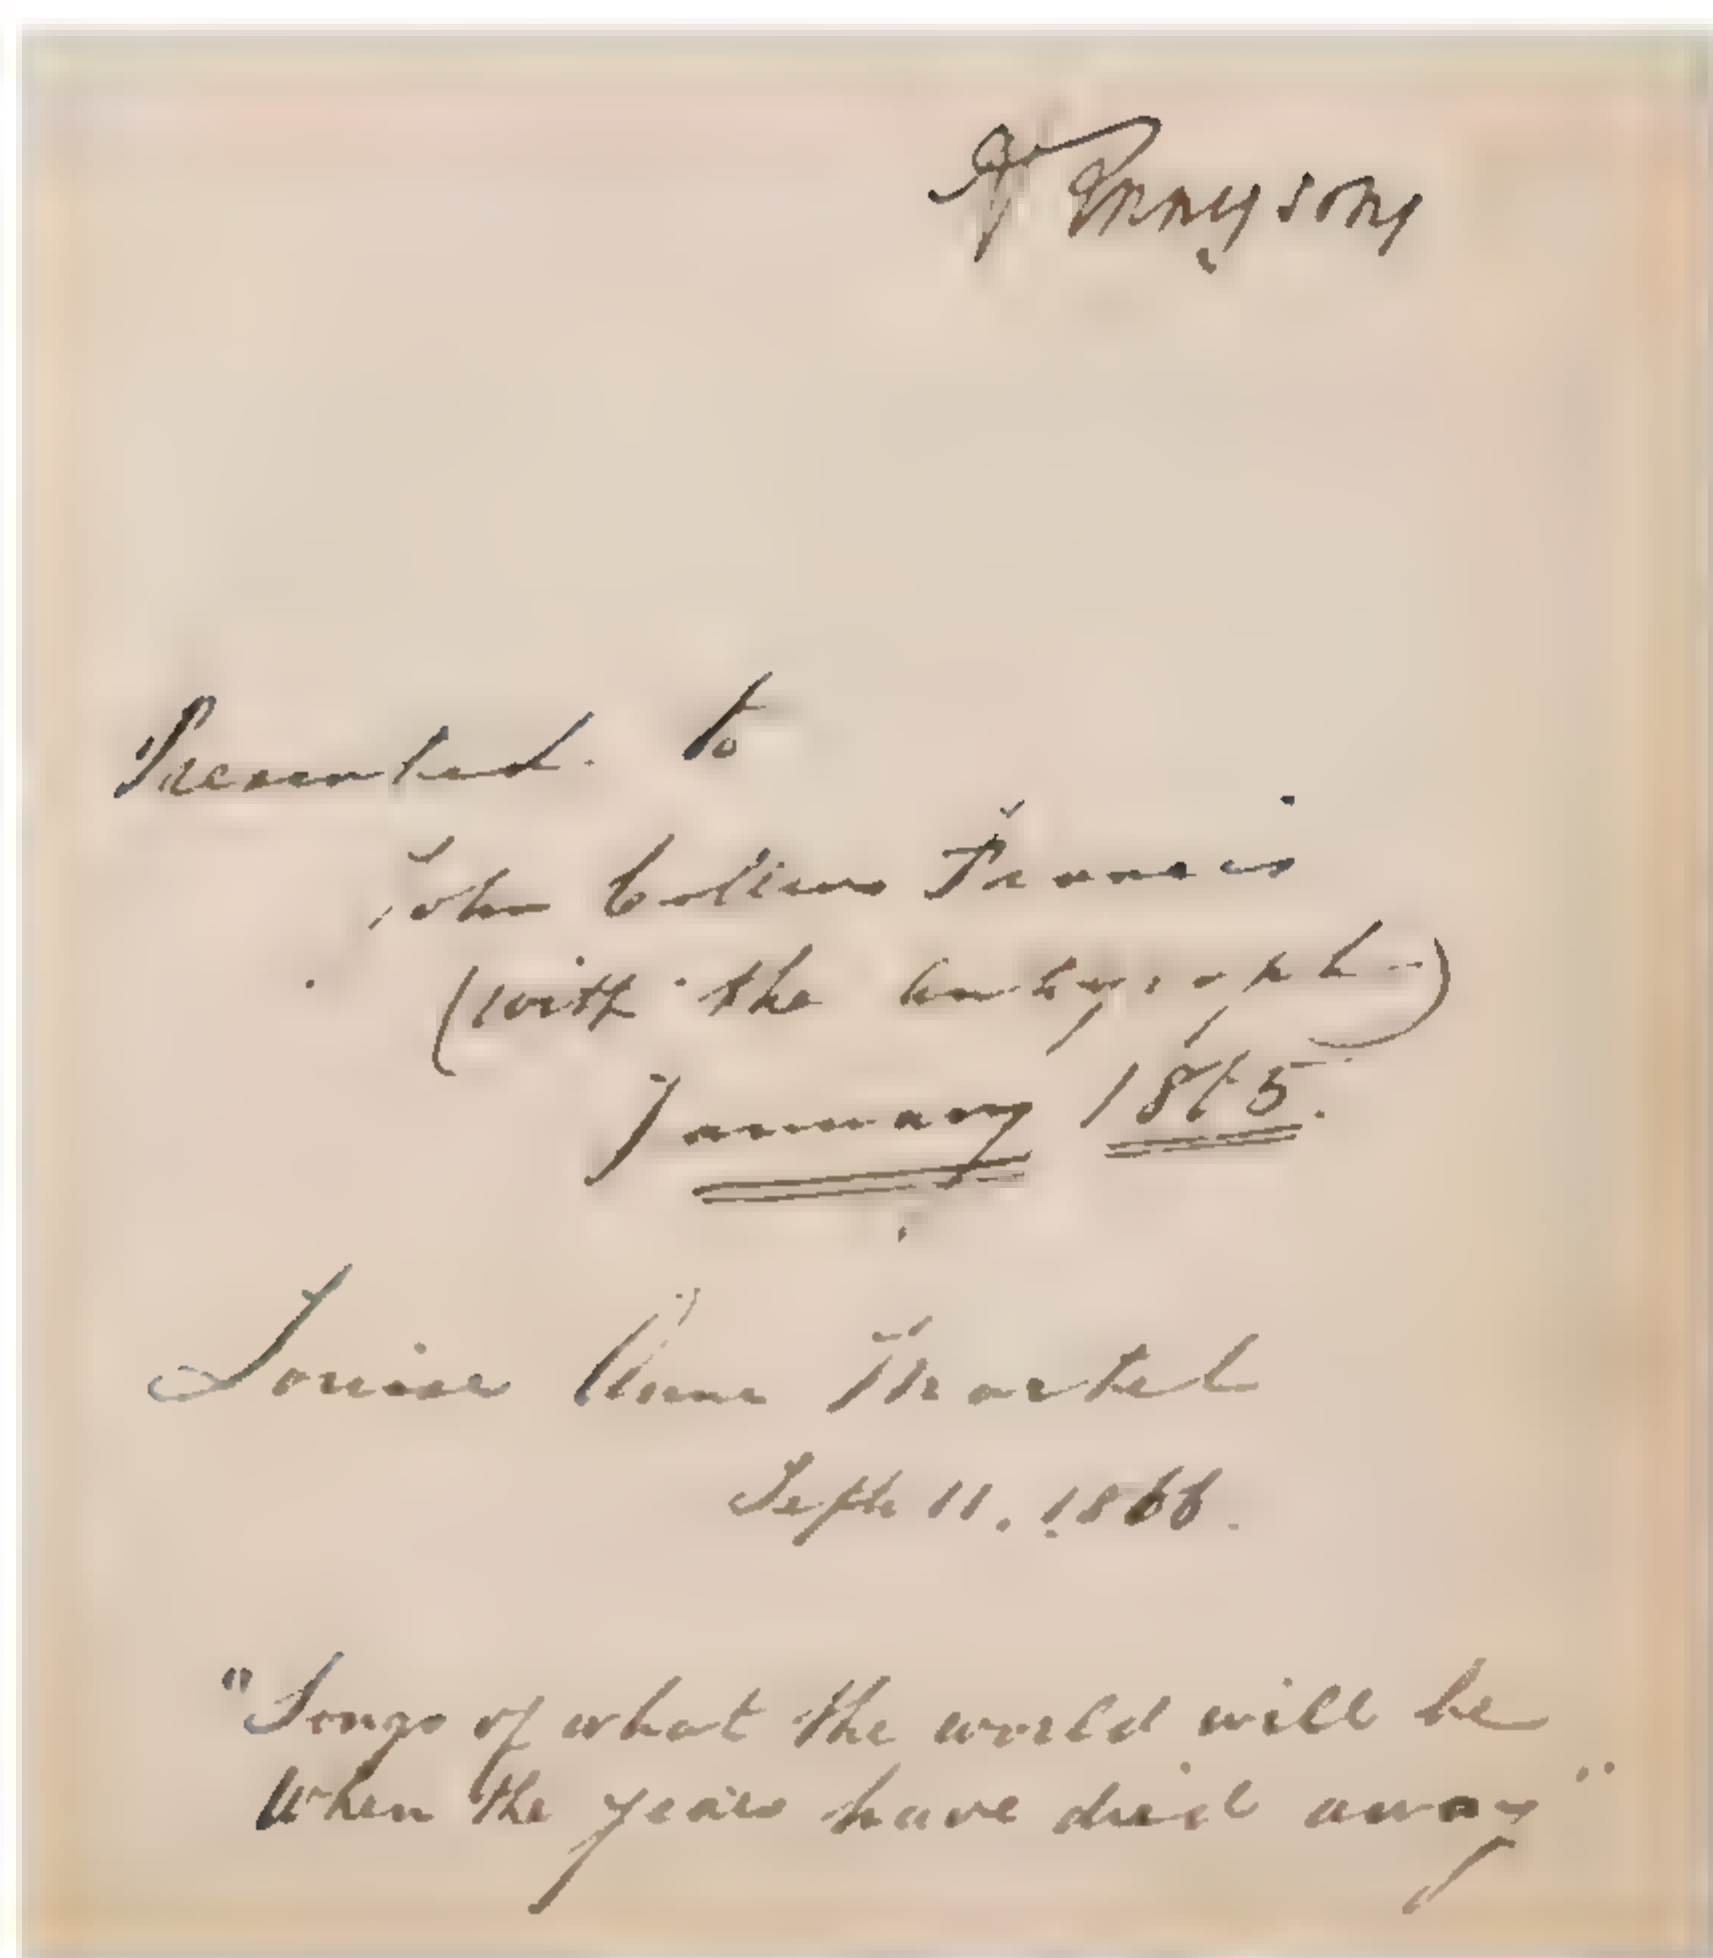 A Tennyson
Presented to
John Collins Francis
(with the autograph)
January 1865.
Louisa Anne Martel
Sept 11. 1866.
"Songs of what the world will be
When the years have died away"